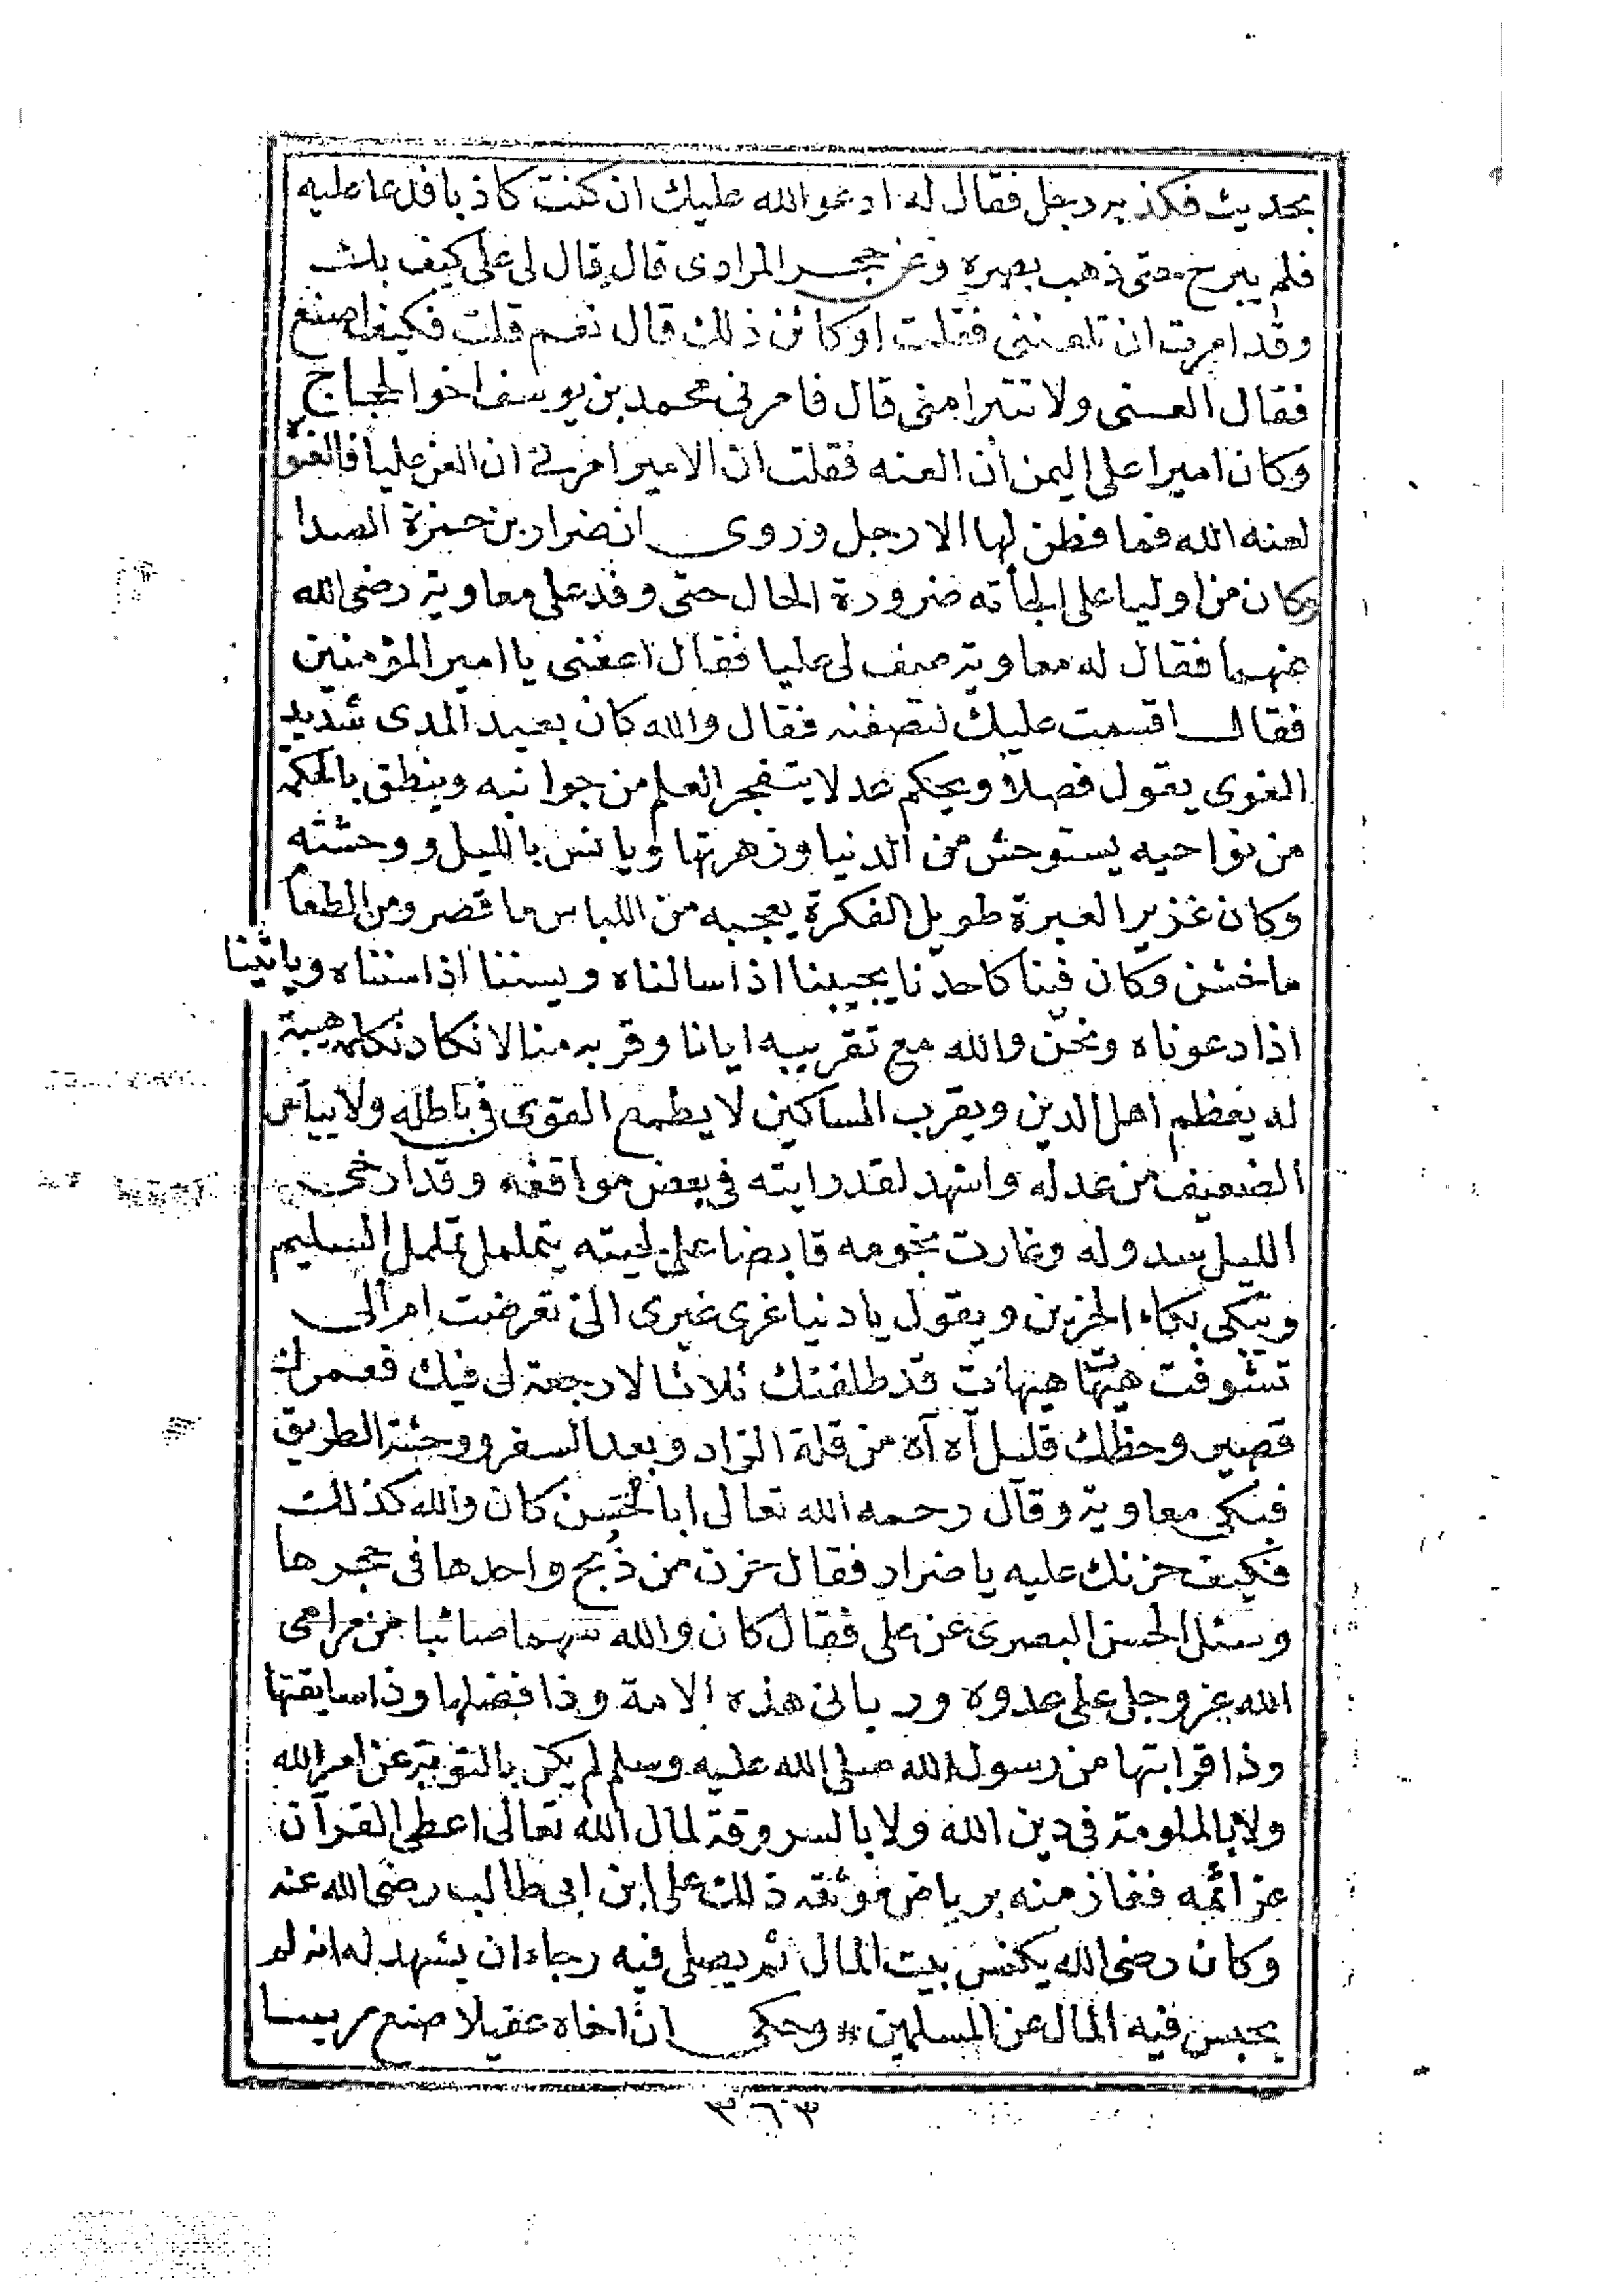 بحديث فكذبه رجل فقال له ادعو الله عليك ان كنت كاذبا فدعا عليه
فلم يبرح حتى ذهب بصره وعن حجر المرادى قال قال لى على كيف بك
وقد امرت ان تلعننى فقلت اوكائن ذلك قال نعم قلت فكيف اصنع
فقال العنى ولا تتبرا منى قال فامرنى محمد بن يوسف اخو الحجاج
وكان اميرا على اليمن ان العنه فقلت ان الامير امرنى ان العن عليا فالعنوه
لعنه الله فما فطن لها الا رجل وروى ان ضرار بن حمزة الصدا
وكان من اوليا على الجأته ضرورة الحال حتى وفد على معاوية رضى الله
عنهما فقال له معاوية صف لى عليا فقال اعفنى يا امير المؤمنين
فقال اقسمت عليك لتصفنه فقال والله كان بعيد المدى شديد
القوى يقول فصلا ويحكم عدلا يتفجر العلم من جوانبه وينطق بالحكمة
من نواحيه يستوحش من الدنيا وزهرتها ويانس بالليل ووحشته
وكان غزير العبرة طويل الفكرة يعجبه من اللباس ما قصر ومن الطعا
ما خشن وكان فينا كاحدنا يجيبنا اذا سالناه ويسننا اذا سنناه وياتينا
اذا دعوناه ونحن والله مع تقريبه ايانا وقربه منا لا نكاد نكلمه هيبة
له يعظم اهل الدين ويقرب المساكين لا يطمع القوى فى باطله ولا ييأس
الضعيف من عدله واشهد لقد رايته فى بعض مواقفه وقد ارخى
الليل سدوله وغارت نجومه قابضا على لحيته يتململ تململ السليم
ويبكى بكاء الحزين ويقول يا دنيا غرى غيرى الى تعرضت ام الى
تشوفت هيهات هيهات قد طلقتك ثلاثا لا رجعة لى فيك فعمرك
قصير وحظك قليل آه آه من قلة الزاد وبعد السفر ووحشة الطريق
فبكى معاوية وقال رحمه الله تعالى ابا الحسن كان والله كذلك
فكيف حزنك عليه يا ضرار فقال حزن من ذبح واحدها فى حجرها
وسئل الحسن البصرى عن على فقال كان والله سهما صائبا من مرامى
الله عز وجل على عدوه وربانى هذه الامة وذا فضلها وذا سابقتها
وذا قرابتها من رسول الله صلى الله عليه وسلم لم يكن بالنومة عن امر الله
ولا بالملومة فى دين الله ولا بالسروقة لمال الله تعالى اعطى القرآن
عزائمه ففاز منه برياض مونقه ذلك على ابن ابى طالب رضى الله عنه
وكان رضى الله يكنس بيت المال ثم يصلى فيه رجاء ان يشهد له انه لم
يحبس فيه المال عن المسلمين * وحكى ان اخاه عقيلا صنع هريسا
٣٦٣